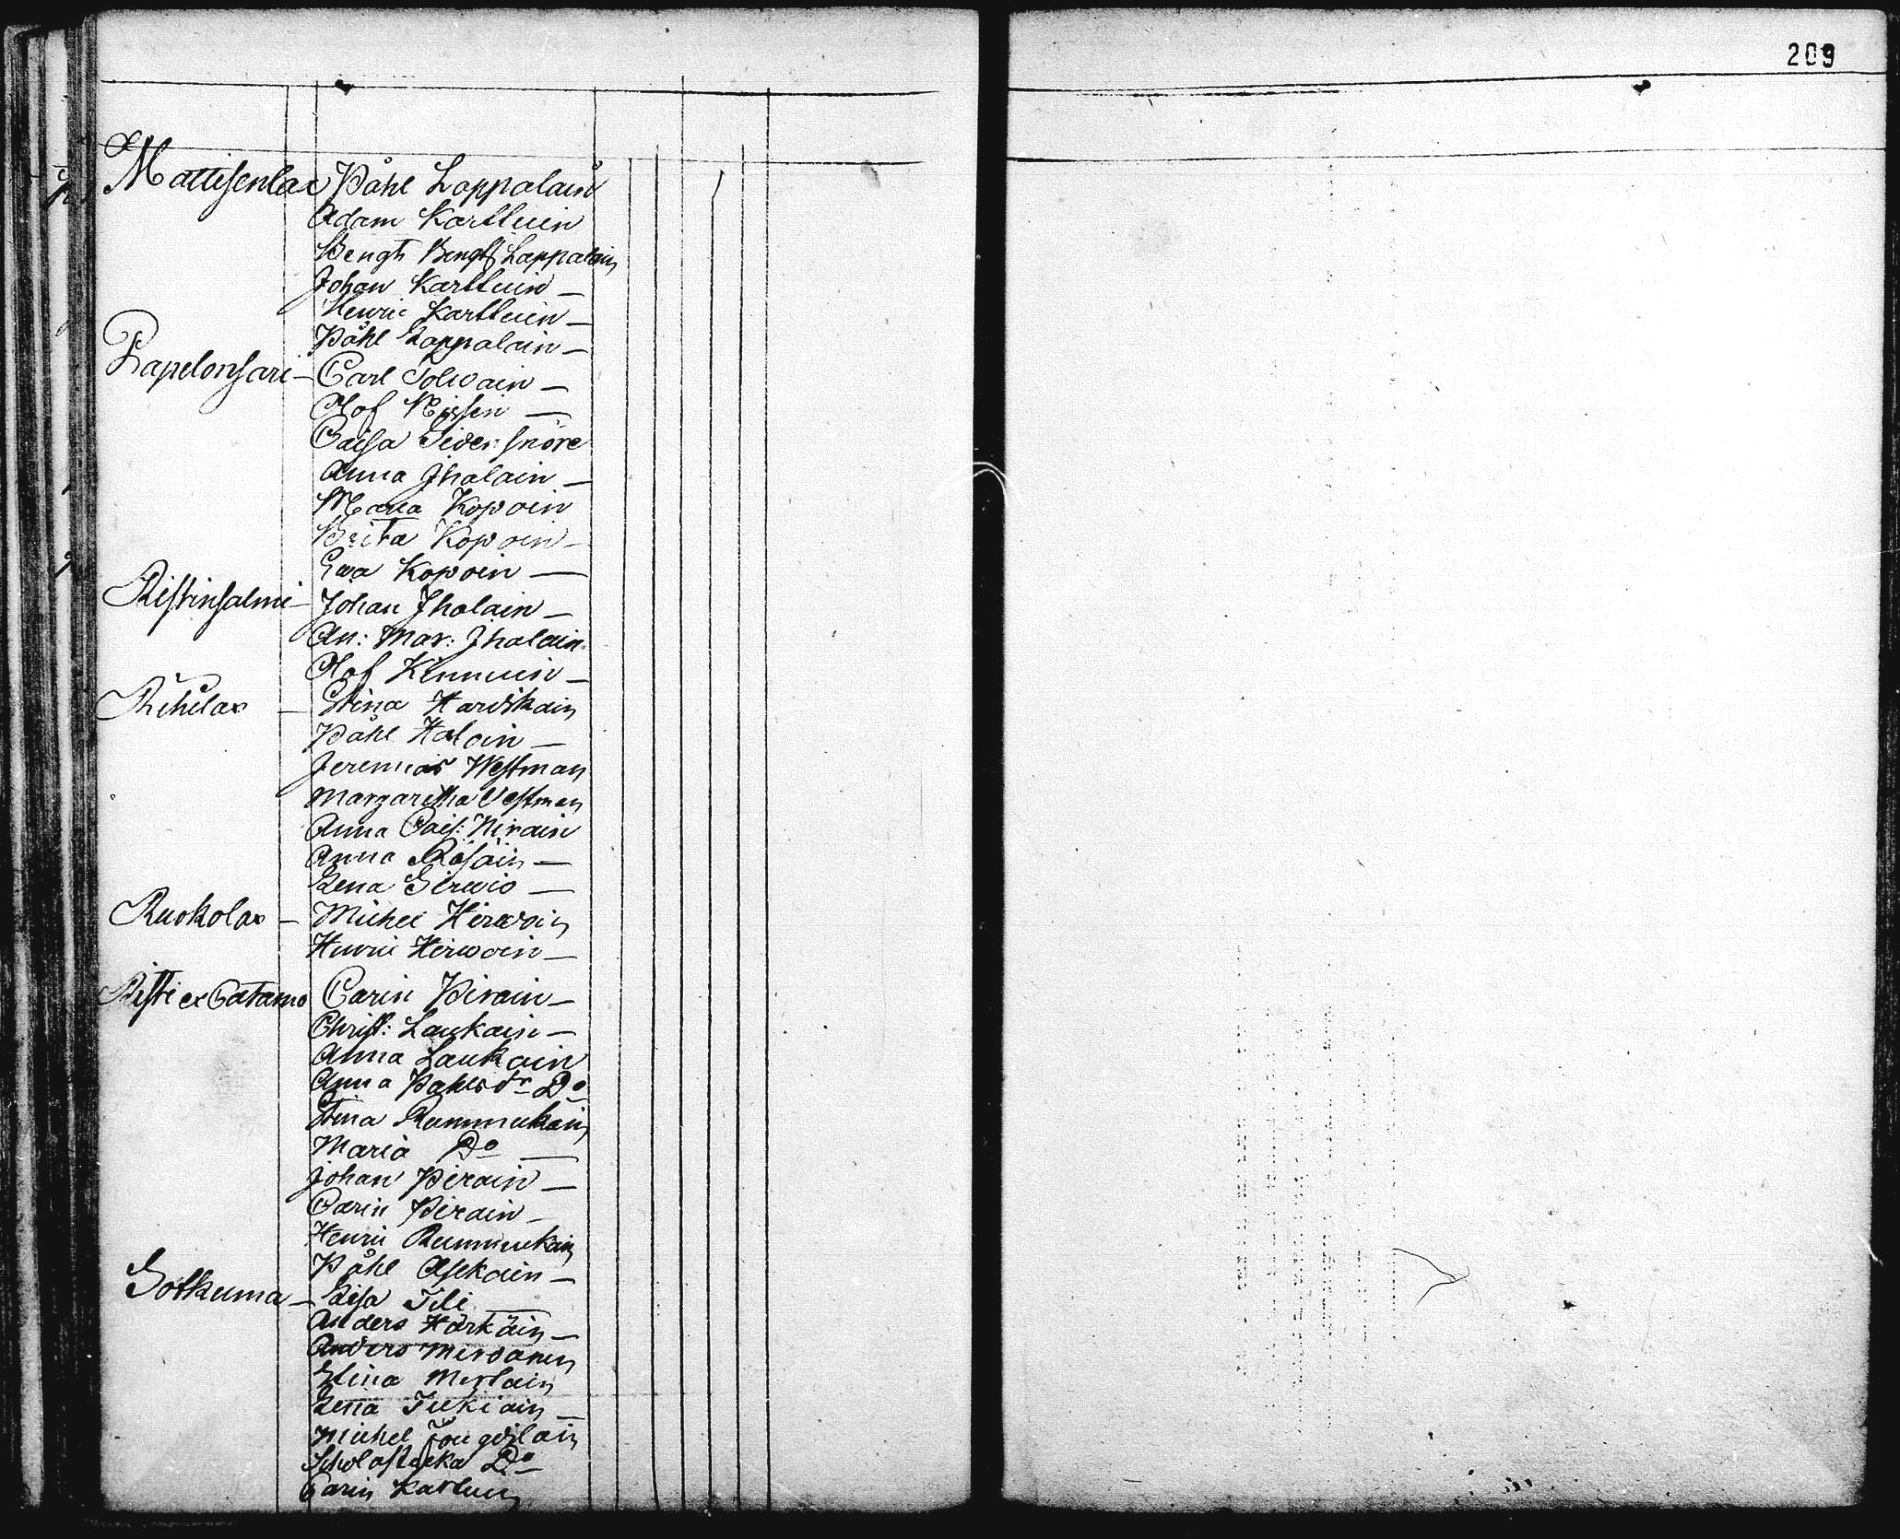 209
Mattisenlax Påhl Lappalain
Adam Karlluin
Bengt Bengts Lappalain
Johan Karlluin —
Henric Karlluin —
Påhl Lappalain —
Papelonsari — Carl Tolvain —
Olof Nissin —
Caisa Snöre
Anna Ihalain —
Maria Kopoin
Brita Kopoin —
Ewa Kopoin —
Ristinsalmi — Johan Ihalain —
An: Mar: Ihalain
Olof Kinnuin —
Rihilax — Stina Harvikain
Påhl Haloin —
Jeremias Westman
Margaretha Vestman
Anna Cais: Hirvain
Anna Räsäin —
Lena Sirviö —
Ruokolax — Michel Hirvoin
Henric Hirwoin —
Risti ex Catamo Carin Pirain —
Christ: Laukain —
Anna Laukain
Anna Påhlsdr Do
Stina Rummukain
Maria Do —
Johan Pirain —
Carin Pirain —
Henric Rummukain
Påhl Asikain —
Sotkuma — Lisa Tili —
Anders Härkäin —
Anders
Stina
Lena Tukiain —
Michel
Scholastika Do
Carin Karluin